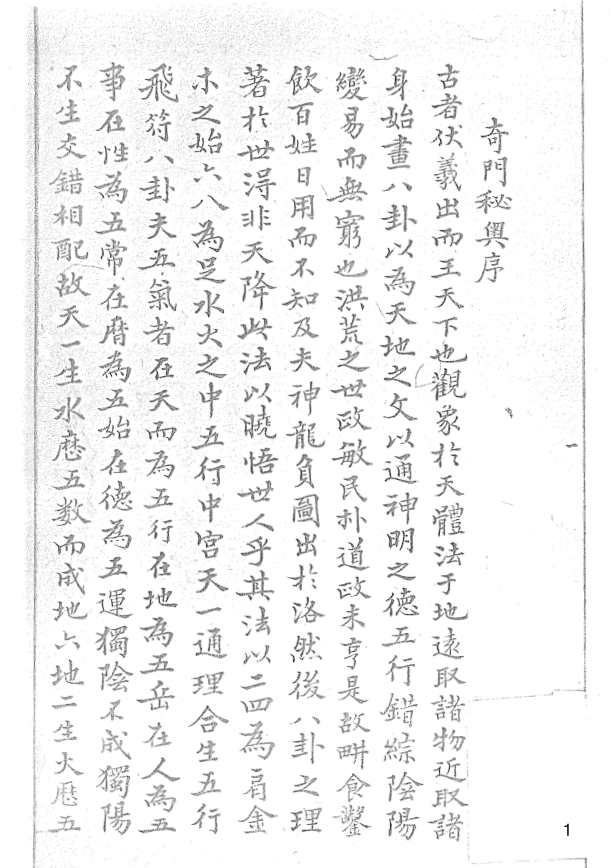 奇門秘奥序
古者伏羲出而王天下也觀象於天體法于地遠取諸物近取諸
身始畫八卦以為天地之文以通神明之德五行錯綜陰陽
變易而無窮也洪荒之世政敏民朴道政未亨是故畊食鑿
飲百姓日用而不知及夫神龍負圖出於洛然後八卦之理
著於世得非天降此法以曉悟世人乎其法以二四為肩金
木之始六八為足水火之中五行中宮天一通理合生五行
飛符八卦夫五氣者在天而為五行在地為五岳在人為五
事在性為五常在曆為五始在德為五運獨陰不成獨陽
不生交錯相配故天一生水歷五数而成地六地二生火歷五
1